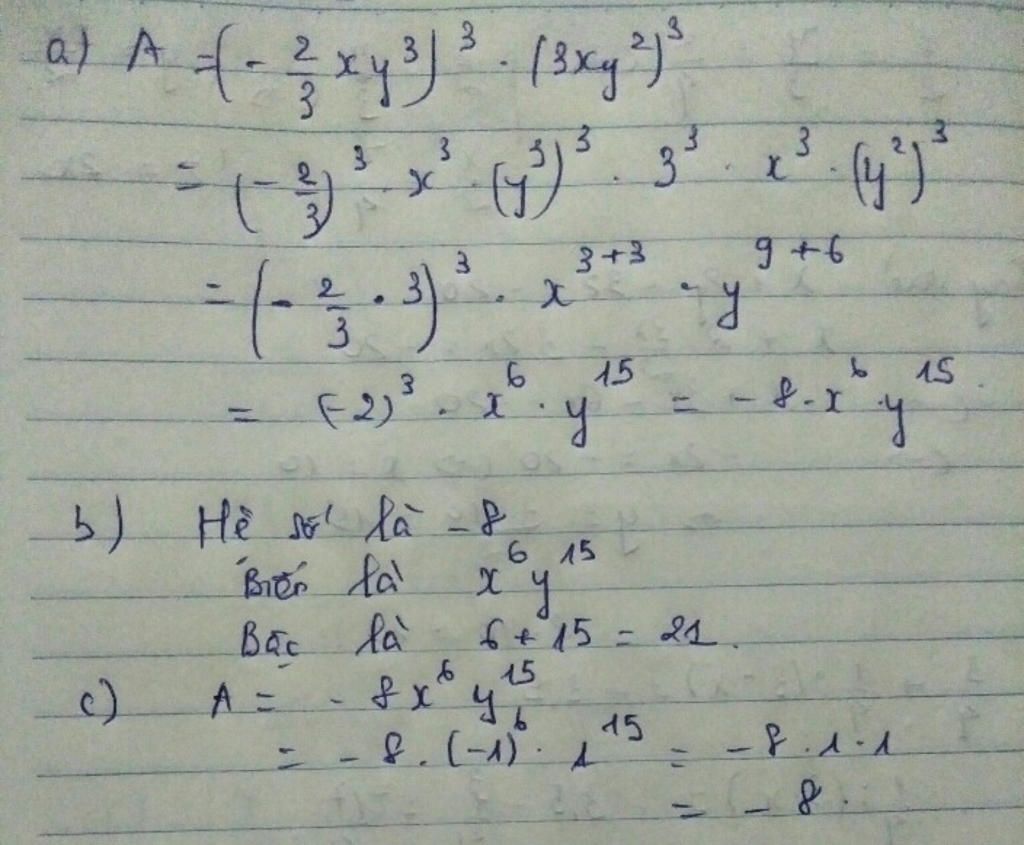 a) A = (-2/3 xy³)³ . (3xy²)³
= (-2/3)³ . x³ . (y³)³ . 3³ . x³ . (y²)³
= (-2/3 . 3)³ . x³⁺³ . y⁹⁺⁶
= (-2)³ . x⁶ . y¹⁵ = -8 . x⁶ . y¹⁵.
b) Hệ số là -8
Biến là x⁶y¹⁵
Bậc là 6 + 15 = 21.
c) A = -8x⁶y¹⁵
= -8 . (-1)⁶ . 1¹⁵ = -8 . 1 . 1
= -8.